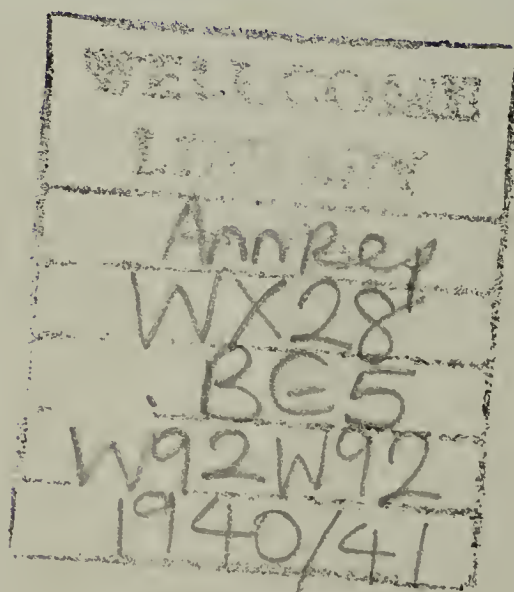 WELLCOME
LIBRARY
Ann Rep
WX28
BE5
W92W92
1940/41